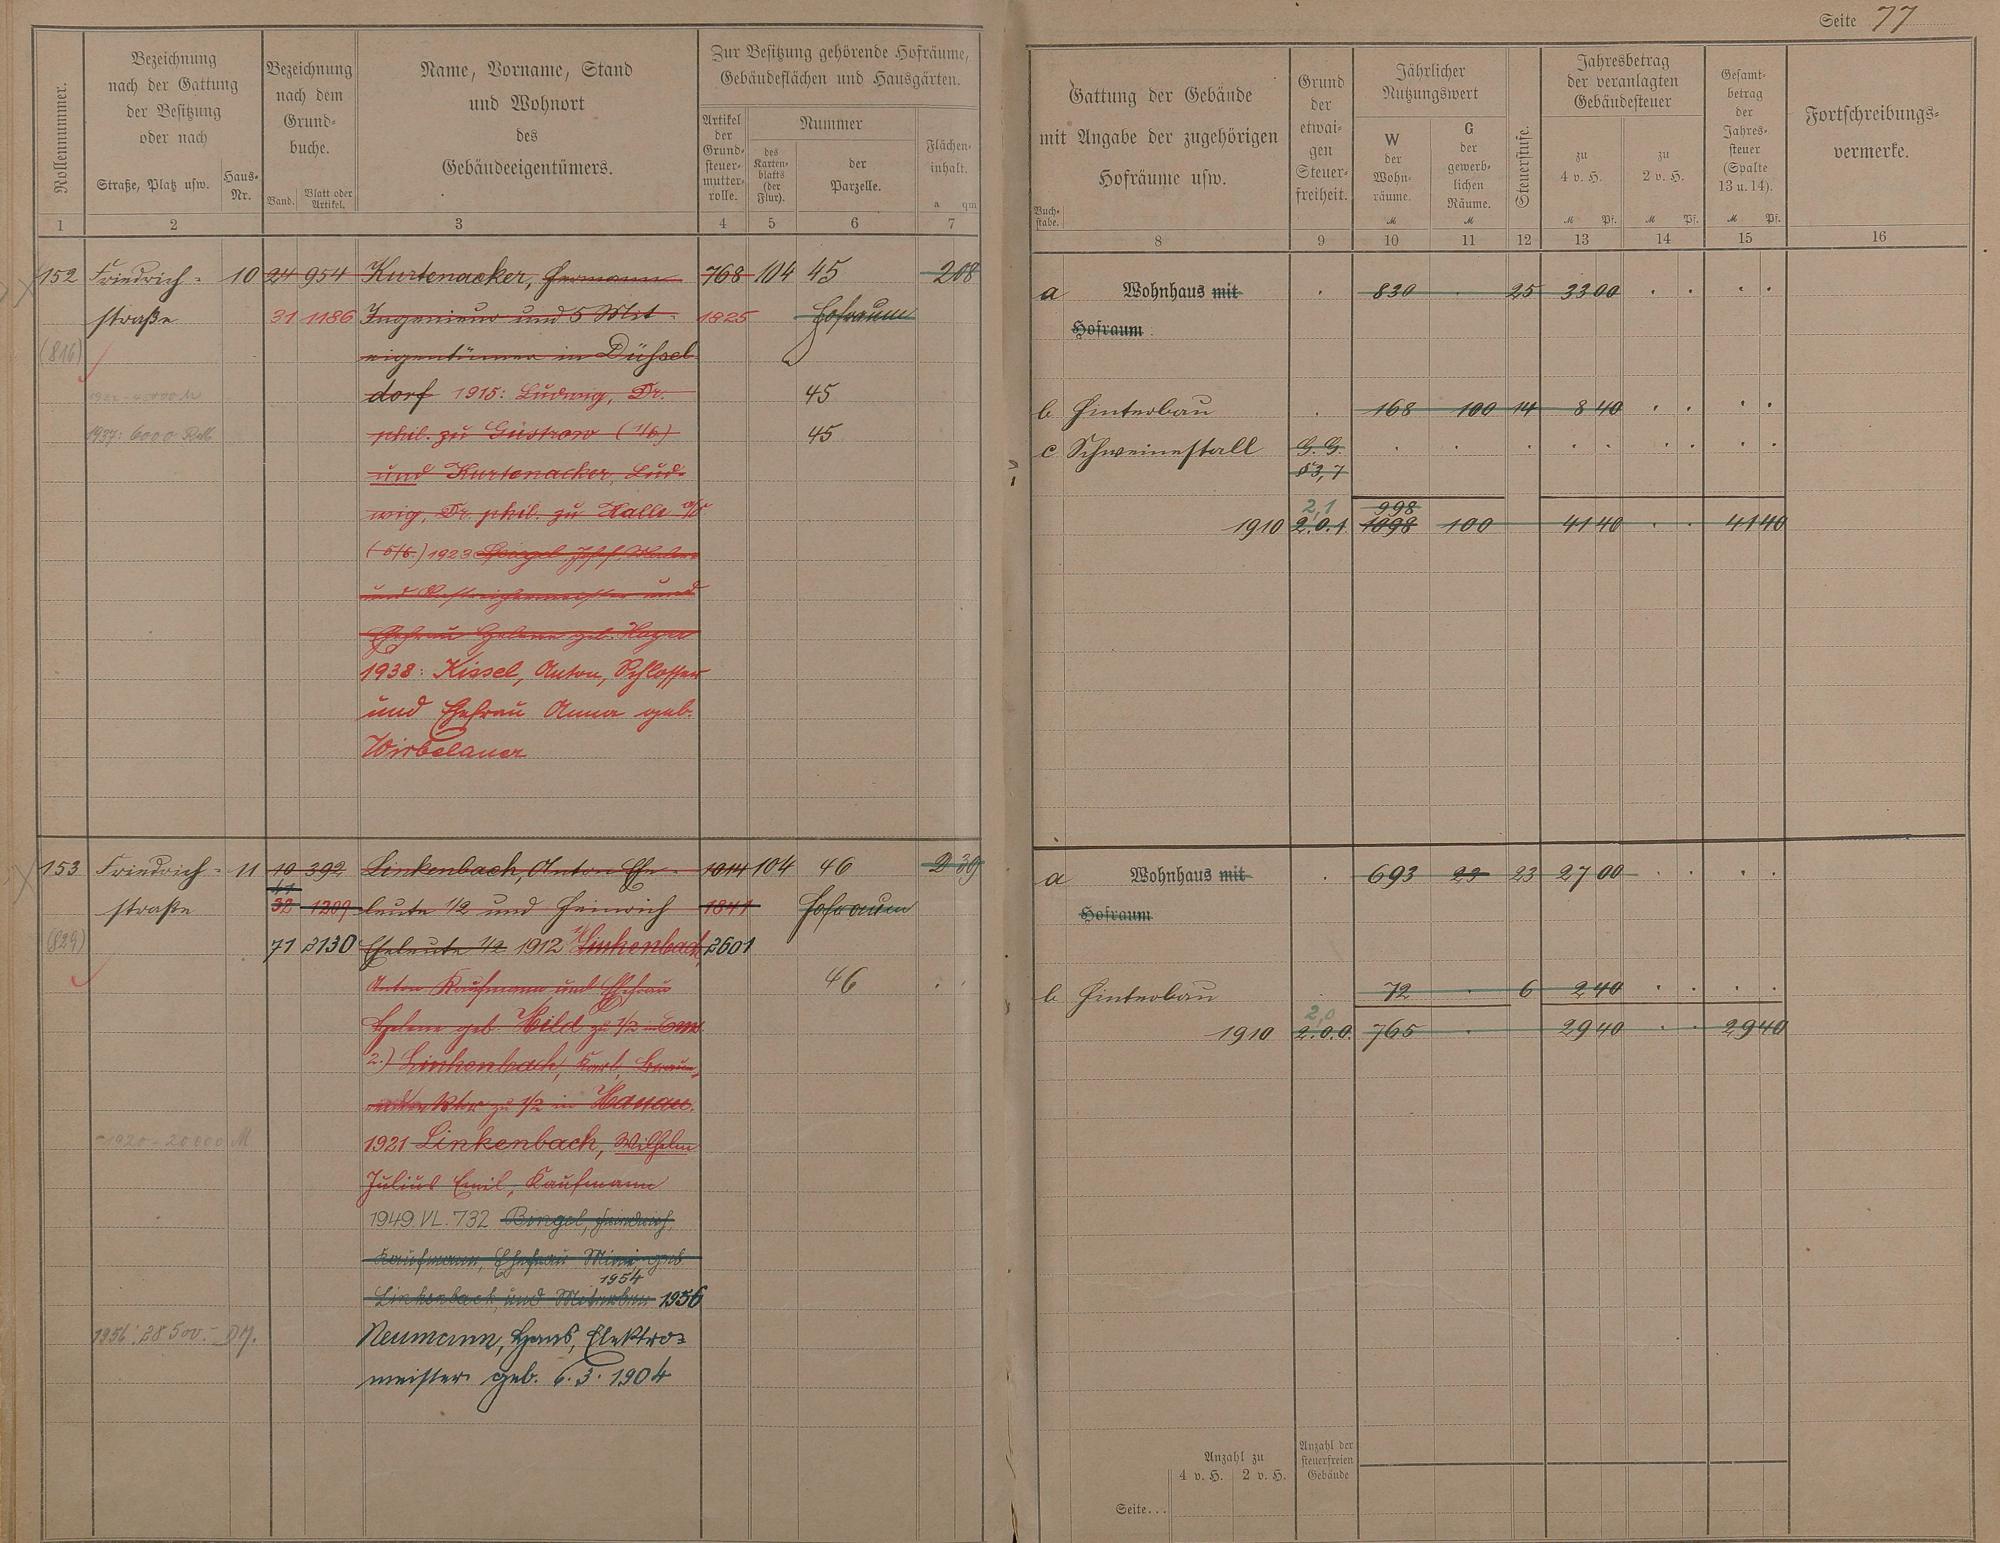 Seite 77
Rollennummer.
Bezeichnung
nach der Gattung
der Besitzung
oder nach
Straße, Platz usw.
Haus-
Nr.
Bezeichnung
nach dem
Grund-
buche.
Band.
Blatt oder
Artikel.
Name, Vorname, Stand
und Wohnort
des
Gebäudeeigentümers.
Zur Besitzung gehörende Hofräume,
Gebäudeflächen und Hausgärten.
Artikel
der
Grund-
steuer-
mutter-
rolle.
Nummer
des
Karten-
blatts
(der
Flur).
der
Parzelle.
Flächen-
inhalt.
a qm
1 2 3 4 5 6 7
Buch-
stabe.
Gattung der Gebäude
mit Angabe der zugehörigen
Hofräume usw.
Grund
der
etwai-
gen
Steuer-
freiheit.
Jährlicher
Nutzungswert
W
der
Wohn-
räume.
M
G
der
gewerb-
lichen
Räume.
M
Steuerstufe.
Jahresbetrag
der veranlagten
Gebäudesteuer
zu
4 v. H.
M Pf.
zu
2 v. H.
M Pf.
Gesamt-
betrag
der
Jahres-
steuer
(Spalte
13 u. 14).
M Pf.
Fortschreibungs-
vermerke.
8 9 10 11 12 13 14 15 16
152 Friedrich- 10 24 954 Kurtenacker, Hermann 768 104 45 208
straße 31 1186 Ingenieur und 5 Mit- 1825 Hofraum
(816) eigentümer in Düssel
dorf 1915: Ludwig, Dr. 45
1937: 6000 RM phil. zu Güstrow (1/6) 45
und Kurtenacker, Lud-
wig, Dr. phil. zu Halle a/S
(5/6) 1923
und und
Ehefrau Helene geb.
1938: Kissel, Anton, Schlosser
und Ehefrau Anna geb.
Wirbelauer
a Wohnhaus mit 830 25 33 00
Hofraum
b Hinterbau 168 100 14 8 40
c Schweinestall G. G.
§3,7
2,1 998
1910 2.0.1 1098 100 41 40 41 40
153 Friedrich- 11 10 392 Linkenbach, Anton Ehe- 1014 104 46 2 39
straße 32 1209 leute 1/2 und Heinrich 1841 Hofraum
(829) 71 2130 Eheleute 1/2 1912 1) Linkenbach, 2601
Anton Kaufmann und Ehefrau 46
Helene geb. Hild zu 1/2 in Ems
2.) Linkenbach, Karl,
zu 1/2 in Hanau.
1920 - 20000 M 1921 Linkenbach, Wilhelm
Julius Emil, Kaufmann
1949. VL. 732 Bongel, Friedrich,
Kaufmann, Ehefrau geb.
1954
Linkenbach und Miterben 1956
1956: 28500.- DM. Neumann, Hans, Elektro-
meister geb. 6.3.1904
a Wohnhaus mit 693 23 23 27 00
Hofraum
b Hinterbau 72 6 2 40
2,0
1910 2.0.0. 765 29 40 29 40
Anzahl zu
4 v. H. 2 v. H.
Anzahl der
steuerfreien
Gebäude
Seite...